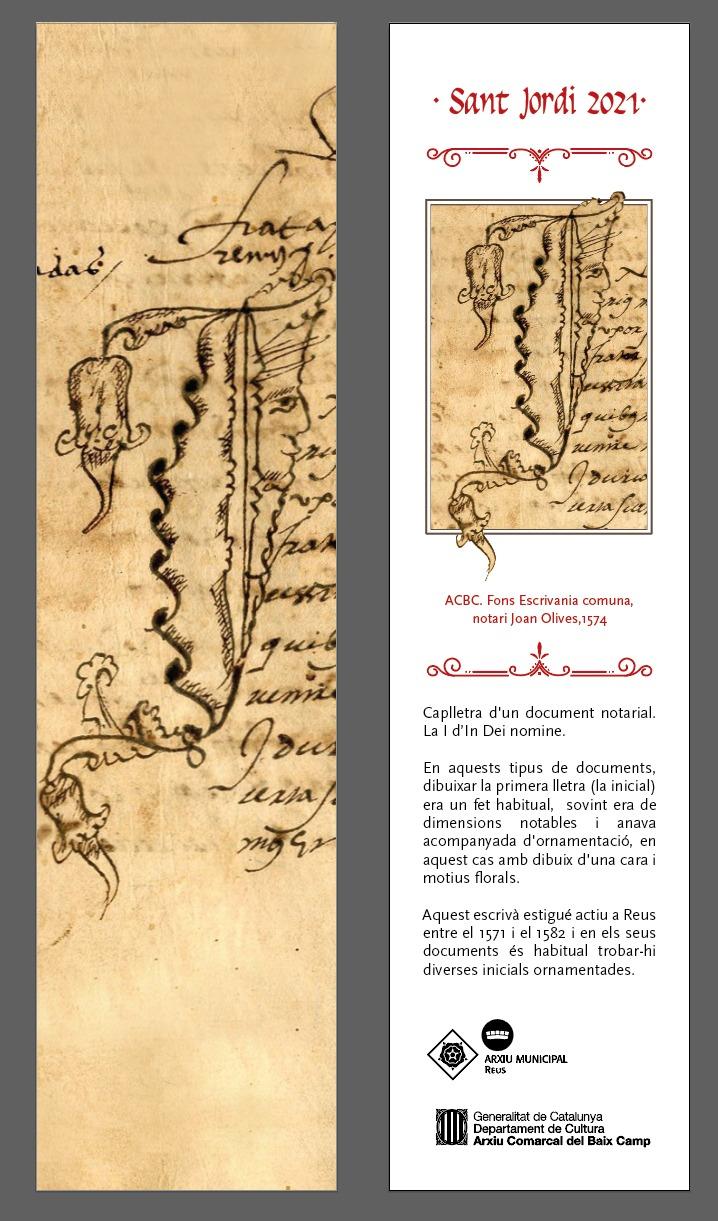 · Sant Jordi 2021·
ACBC. Fons Escrivania comuna,
notari Joan Olives,1574
Caplletra d'un document notarial.
La I d'In Dei nomine.
En aquests tipus de documents,
dibuixar la primera lletra (la inicial)
era un fet habitual, sovint era de
dimensions notables i anava
acompanyada d'ornamentació, en
aquest cas amb dibuix d'una cara i
motius florals.
Aquest escrivà estigué actiu a Reus
entre el 1571 i el 1582 i en els seus
documents és habitual trobar-hi
diverses inicials ornamentades.
ARXIU MUNICIPAL
REUS
Generalitat de Catalunya
Departament de Cultura
Arxiu Comarcal del Baix Camp